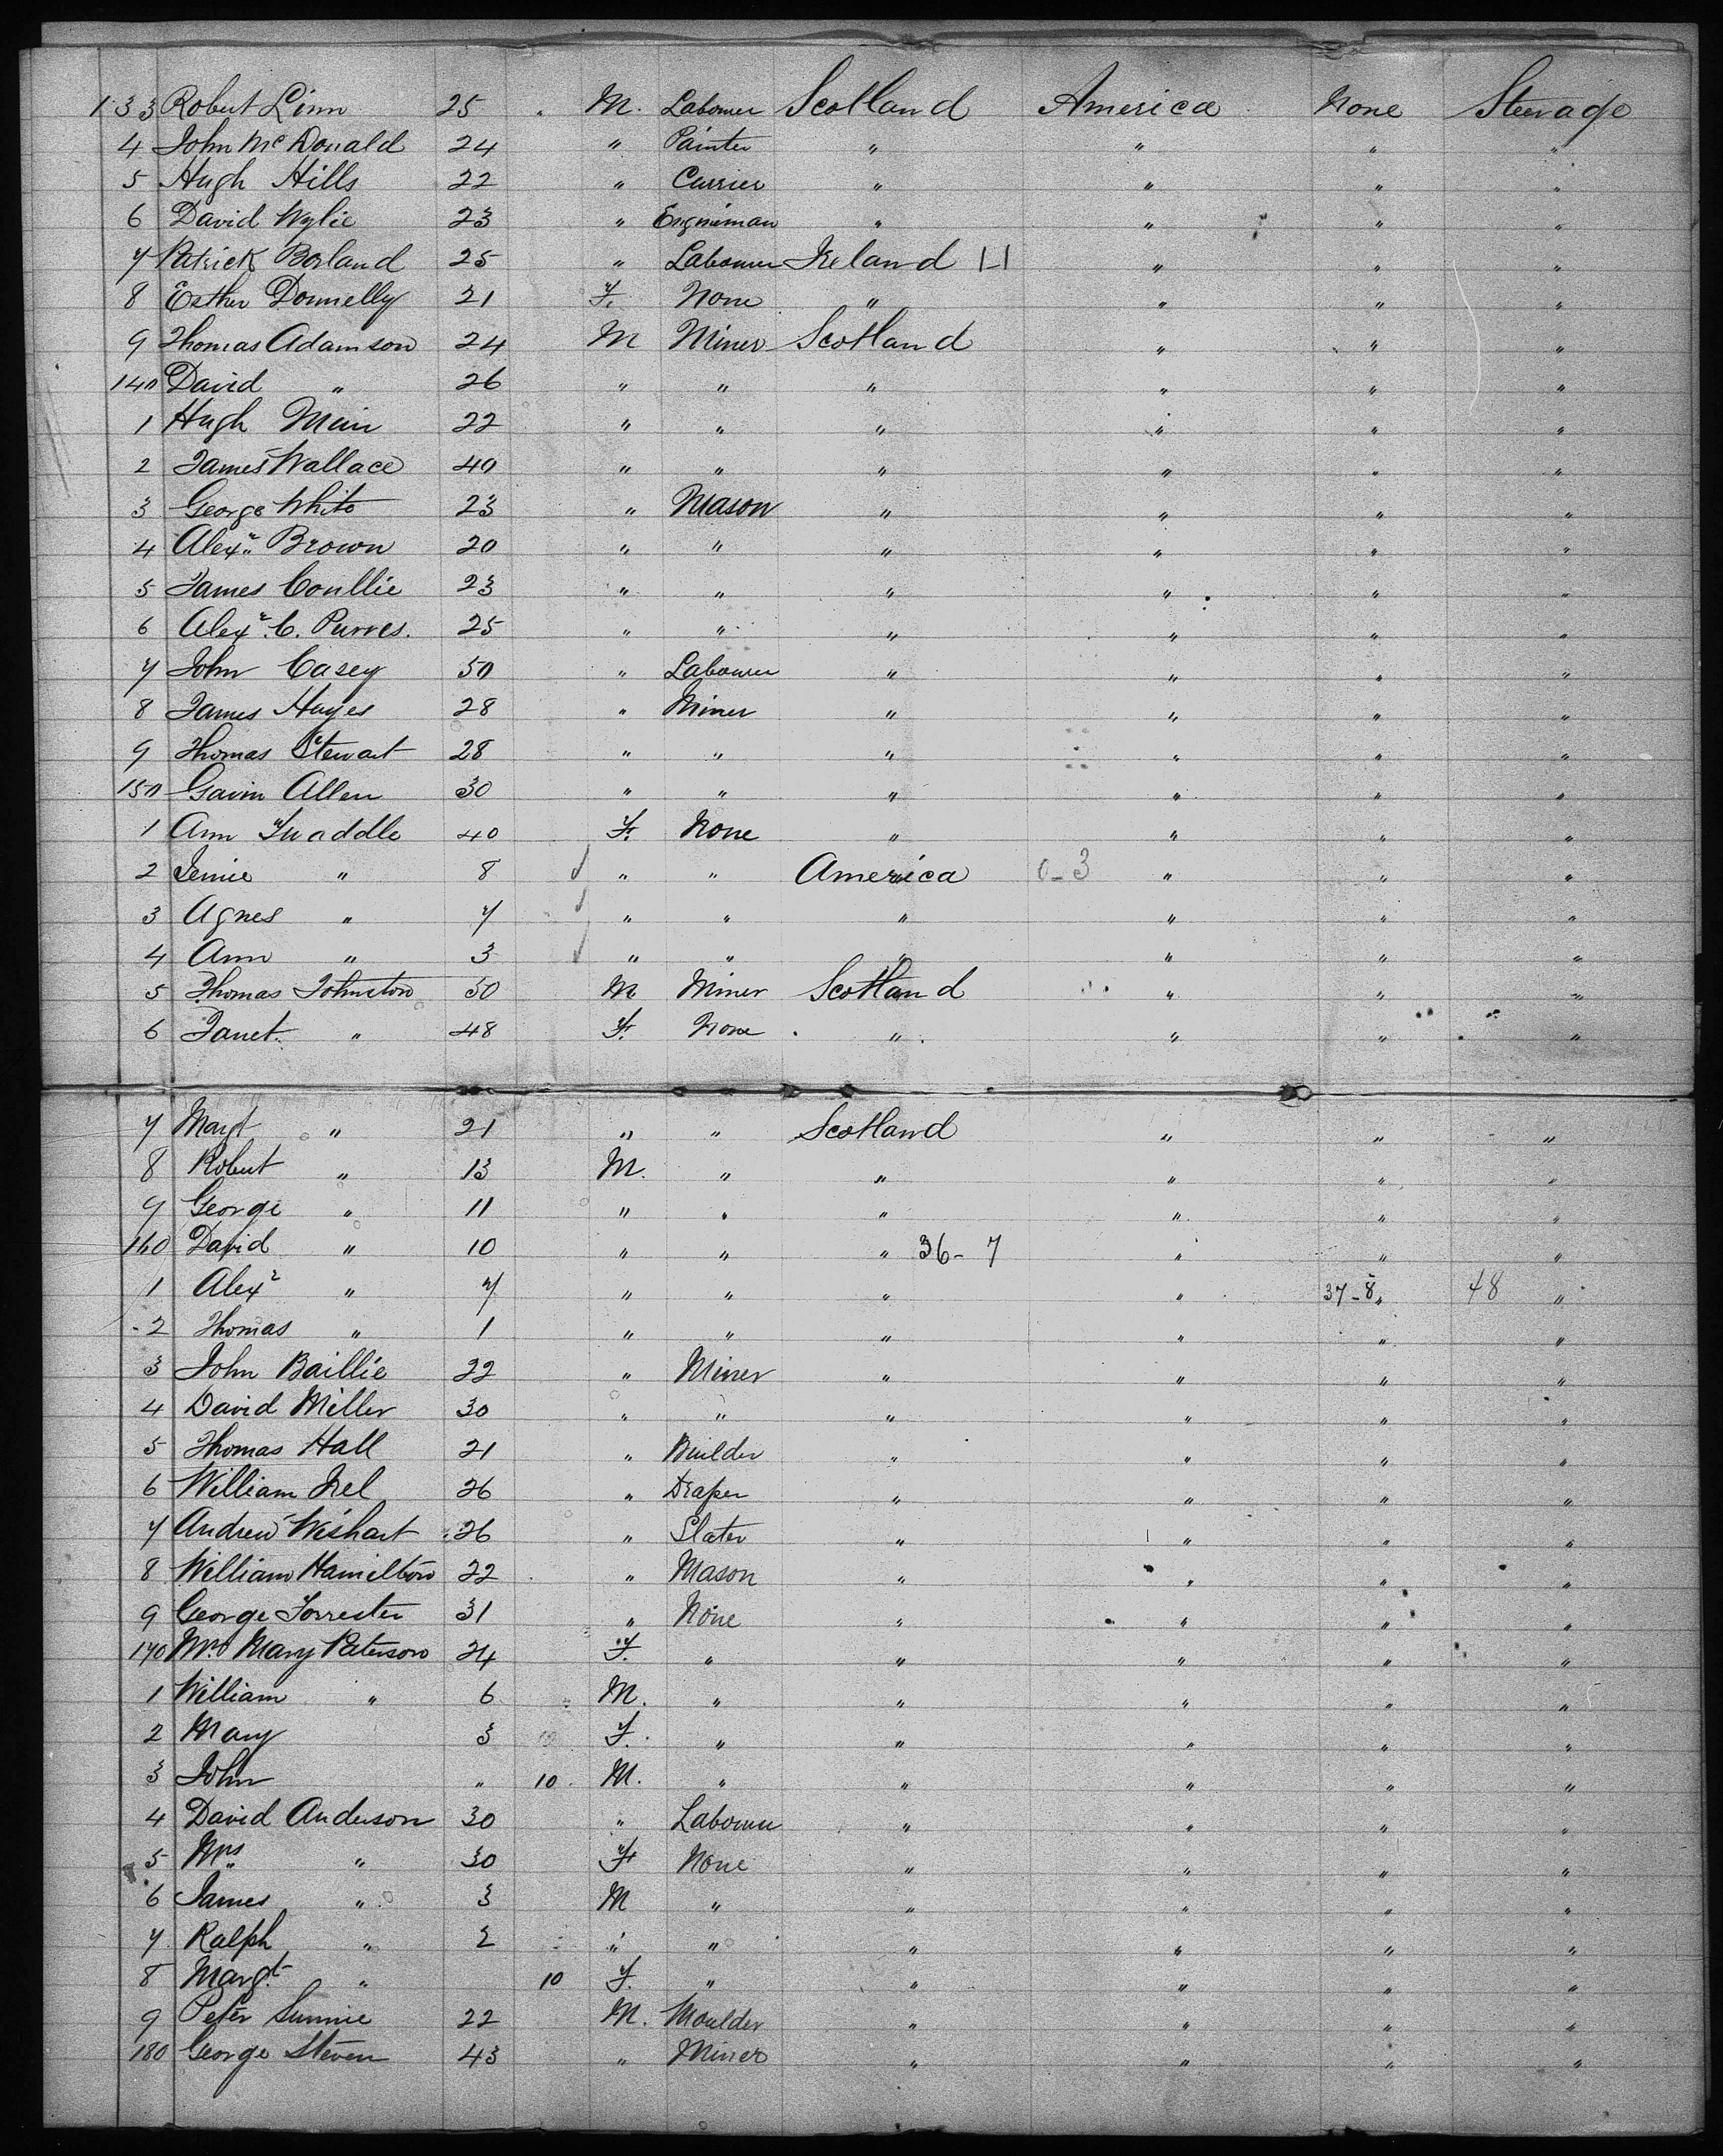 133 Robert Linn 25 M. Labourer Scotland America None Steerage
4 John McDonald 24 " Painter " " " "
5 Hugh Hills 22 " Currier " " " "
6 David Wylie 23 " Engineman " " " "
7 Patrick Borland 25 " Labourer Ireland 1-1 " " "
8 Esther Donnelly 21 F. None " " " "
9 Thomas Adamson 24 M Miner Scotland " " "
140 David " 26 " " " " " "
1 Hugh Muir 22 " " " " " "
2 James Wallace 40 " " " " " "
3 George White 23 " Mason " " " "
4 Alexr Brown 20 " " " " " "
5 James Coullie 23 " " " " " "
6 Alexr. C. Purves. 25 " " " " " "
7 John Casey 50 " Labourer " " " "
8 James Hayes 28 " Miner " " " "
9 Thomas Stewart 28 " " " " " "
150 Gavin Allen 30 " " " " " "
1 Ann Twaddle 40 F. None " " " "
2 Jenie " 8 " " America 0-3 " " "
3 Agnes " 7 " " " " " "
4 Ann " 3 " " " " " "
5 Thomas Johnston 50 M Miner Scotland " " "
6 Janet " 48 F. None " " " "
7 Margt " 21 " " Scotland " " "
8 Robert " 13 M. " " " " "
9 George " 11 " " " " " "
160 David " 10 " " " 36-7 " " "
1 Alexr " 7 " " " " 37-8 " 48 "
2 Thomas " 1 " " " " " "
3 John Baillie 22 " Miner " " " "
4 David Miller 30 " " " " " "
5 Thomas Hall 21 " Builder " " " "
6 William 26 " Draper " " " "
7 Andrew Wishart 26 " Slater " " " "
8 William Hamilton 22 " Mason " " " "
9 George Forrester 31 " None " " " "
170 Mrs Mary Paterson 24 F. " " " " "
1 William " 6 M. " " " " "
2 Mary 3 F. " " " " "
3 John " 10 M. " " " " "
4 David Anderson 30 " Labourer " " " "
5 Mrs " 30 F None " " " "
6 James " 3 M " " " " "
7 Ralph " 2 " " " " " "
8 Margt " 10 F. " " " " "
9 Peter 22 M. Moulder " " " "
180 George Steven 43 " Miner " " " "